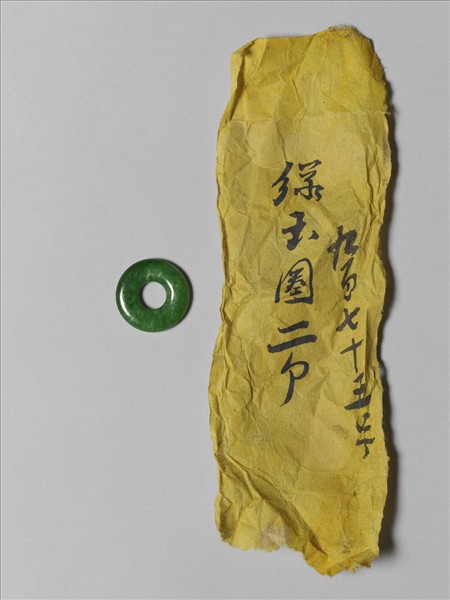 九百七十五号
綠玉圈二个